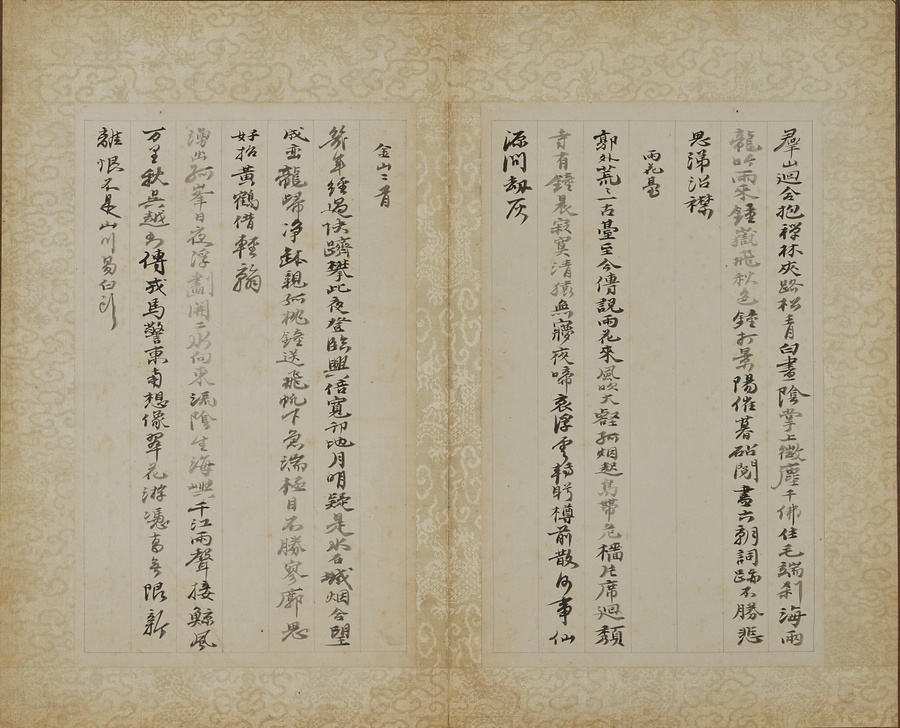 群山迴合抱禪林夾路松青白晝陰掌上微塵千佛住毛端剎海雨
龍吟雨來鍾嶽飛秋色鐘打景陽催暮砧閱盡六朝詞跡不勝悲
思涕沾襟
雨花臺
郭外荒荒一古臺至今傳說雨花來風吹大壑孤烟起鳥帶危檣片席迴頹
寺有鐘晨寂寞清猿無夢夜啼哀浮雲轉眄樽前散何事仙
源問劫灰
金山二首
幾年經過快躋攀此夜登臨興倍寬卻地月明疑是水石城烟合望
成巒龍歸淨缽親孤桃鐘送飛帆下急湍極目不勝寥廓思
好招黃鶴借輕翰
湧出孤峯日夜浮劃開二水向東流陰生海嶼千江雨聲接鯨風
万里秋吳越書傳戎馬警東南想像翠花游憑高無限新
離恨不是山川易白頭